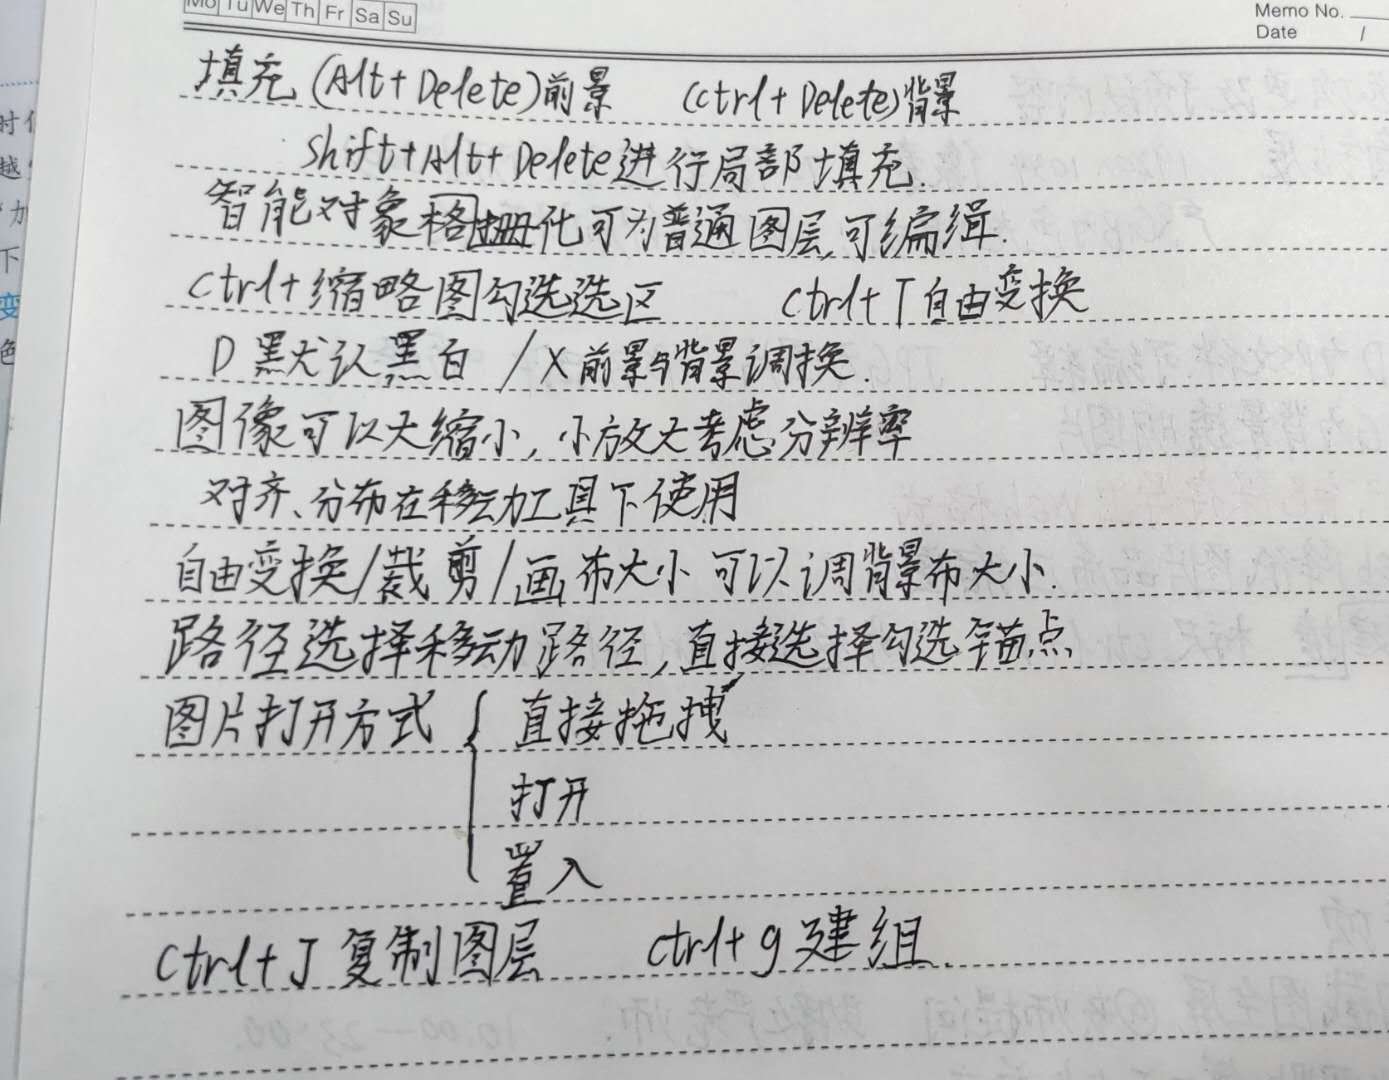 Mo Tu We Th Fr Sa Su
Memo No.
Date /
填充 (Alt+Delete)前景 (ctrl+Delete)背景
Shift+Alt+Delete进行局部填充.
智能对象格栅化可为普通图层,可编缉.
ctrl+缩略图勾选选区 ctrl+T自由变换
D 黑犬认黑白 / X前景与背景调换.
图像可以大缩小,小放大考虑分辨率
对齐、分布在移动工具下使用
自由变换/裁剪/画布大小可以调背景布大小.
路径选择移动路径,直接选择勾选锚点
图片打开方式 { 直接拖拽
打开
置入
ctrl+J 复制图层 ctrl+g 建组.